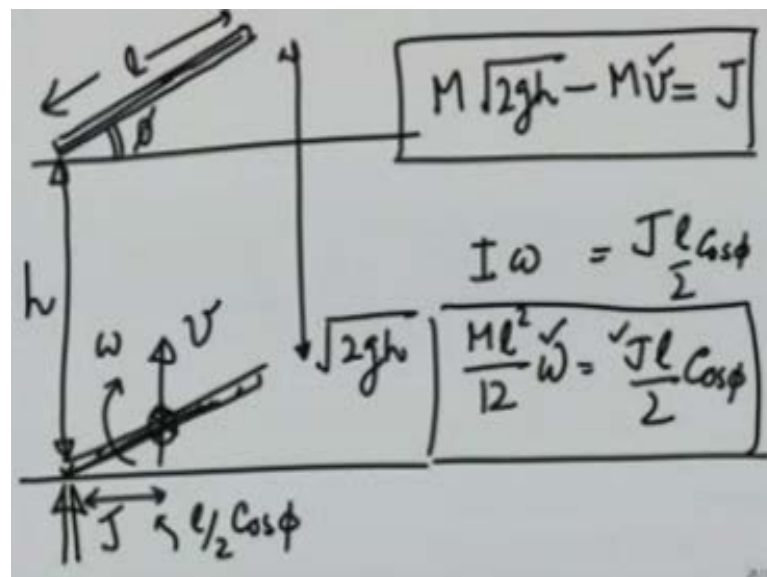 l
ϕ
M√2gh - Mv = J
h
Iω = Jl/2 Cosϕ
ω
v
√2gh
Ml²/12 ω = Jl/2 Cosϕ
J
l/2 Cosϕ